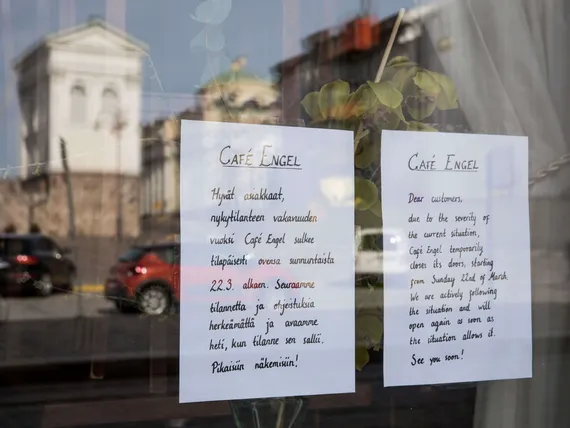 CAFÉ ENGEL
Hyvät asiakkaat,
nykytilanteen vakavuuden
vuoksi Café Engel sulkee
tilapäisesti ovensa sunnuntaista
22.3. alkaen. Seuraamme
tilannetta ja ohjeistuksia
herkeämättä ja avaamme
heti, kun tilanne sen sallii.
Pikaisiin näkemisiin!
CAFÉ ENGEL
Dear customers,
due to the severity of
the current situation,
Café Engel temporarily
closes its doors, starting
from Sunday 22nd of March.
We are actively following
the situation and will
open again as soon as
the situation allows it.
See you soon!